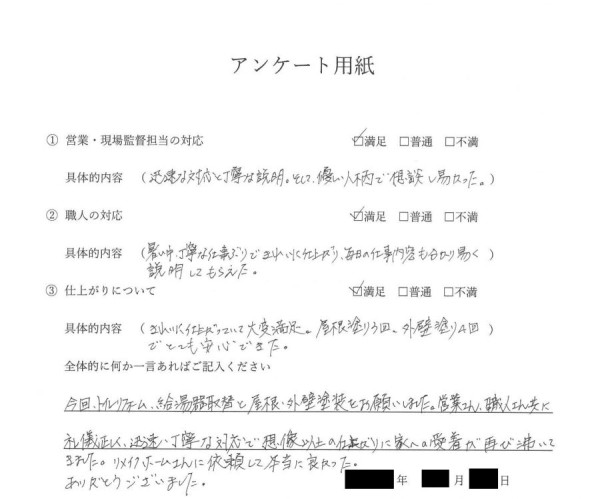 アンケート用紙
① 営業・現場監督担当の対応 ☑満足 □普通 □不満
具体的内容 (迅速な対応と丁寧な説明。そして、優しい人柄で相談し易かった。)
② 職人の対応 ☑満足 □普通 □不満
具体的内容 (暑い中、丁寧な仕事ぶりできれいに仕上がり、毎日の仕事内容も分かり易く)
説明してもらえた。
③ 仕上がりについて ☑満足 □普通 □不満
具体的内容 (きれいに仕上がっていて大変満足。屋根塗り3回、外壁塗り4回)
でとても安心できた。
全体的に何か一言あればご記入ください
今回、トイレリフォーム、給湯器取替と屋根・外壁塗装をお願いしました。営業さん、職人さん共に
礼儀正しく、迅速・丁寧な対応で想像以上の仕上がりに家への愛着が再び沸いて
きました。リメイクホームさんに依頼して本当に良かった。
ありがとうございました。
年 月 日